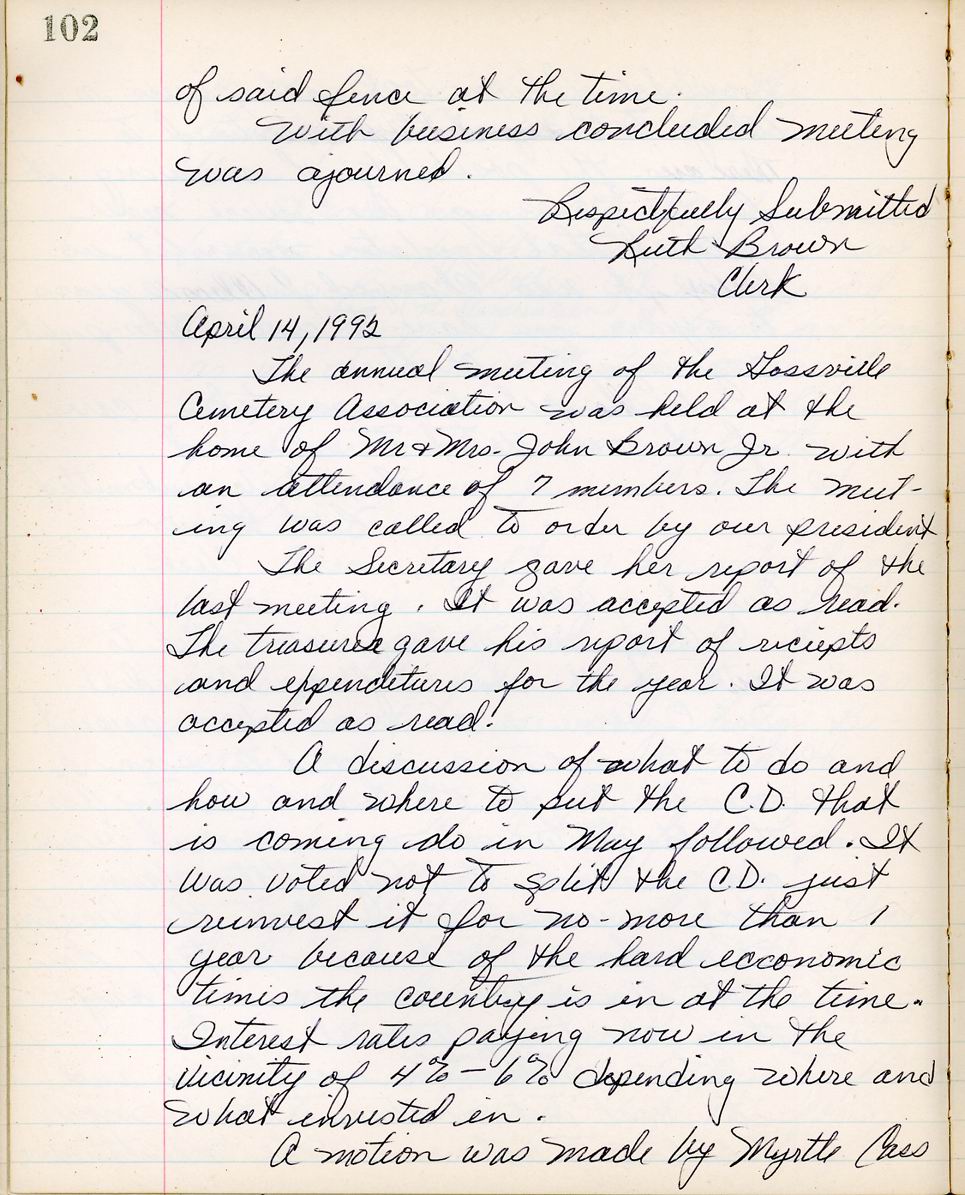 102
of said fence at the time.
With business concluded meeting
was ajourned.
Respectfully Submitted
Ruth Brown
Clerk
April 14, 1992
The annual meeting of the Gossville
Cemetery Association was held at the
home of Mr & Mrs. John Brown Jr. with
an attendance of 7 members. The meet-
ing was called to order by our president
The Secretary gave her report of the
last meeting. It was accepted as read.
The treasurer gave his report of reciepts
and expenditures for the year. It was
accepted as read.
A discussion of what to do and
how and where to put the C.D. that
is coming do in May followed. It
was voted not to split the C.D. just
reinvest it for no-more than 1
year because of the hard ecconomic
times the country is in at the time.
Interest rates paying now in the
vicinity of 4% - 6% depending where and
what invested in.
A motion was made by Myrtle Cass